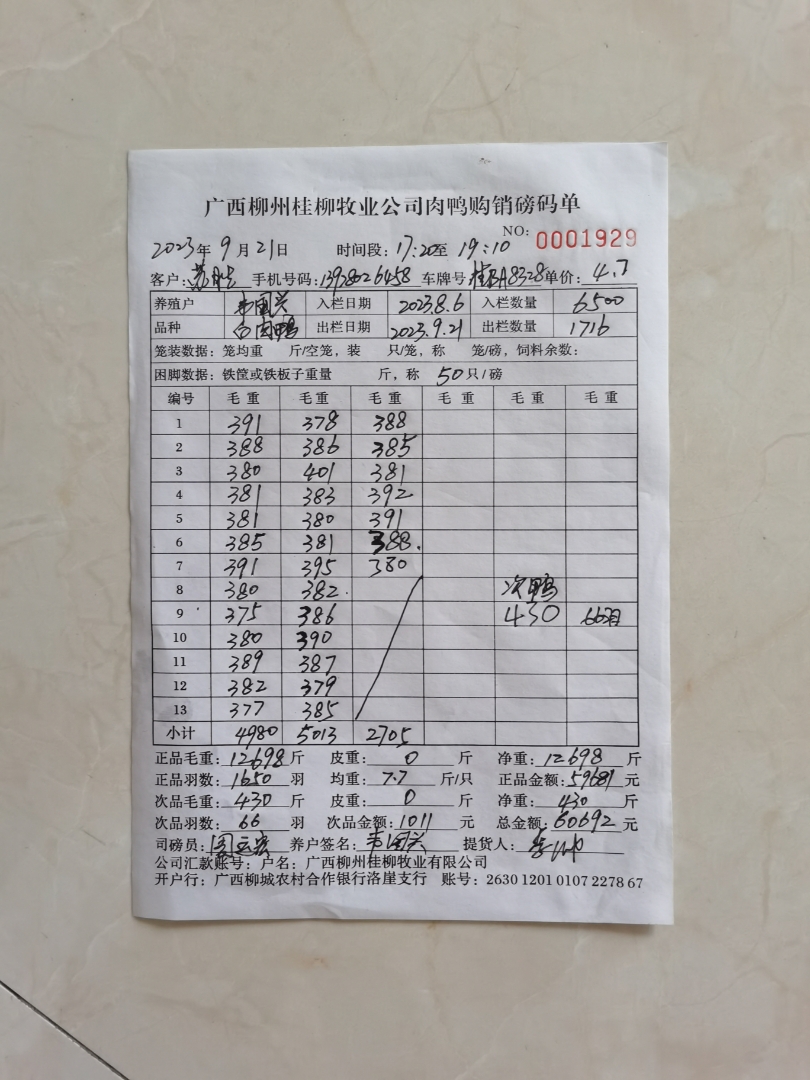 广西柳州桂柳牧业公司肉鸭购销磅码单
NO: 0001929
2023年 9月 21日 时间段: 17:20至 19:10
客户: 手机号码: 13978026458 车牌号 桂BA8328 单价: 4.7
养殖户 韦国兴 入栏日期 2023.8.6 入栏数量 6500
品种 白肉鸭 出栏日期 2023.9.21 出栏数量 1716
笼装数据: 笼均重 斤/空笼, 装 只/笼, 称 笼/磅, 饲料余数:
困脚数据: 铁筐或铁板子重量 斤, 称 50只/磅
编号 毛重 毛重 毛重 毛重 毛重 毛重
1 391 378 388
2 388 386 385
3 380 401 381
4 381 383 392
5 381 380 391
6 385 381 388.
7 391 395 380
8 380 382. 次鸭
9 375 386 430 66羽
10 380 390
11 389 387
12 382 379
13 377 385
小计 4980 5013 2705
正品毛重: 12698 斤 皮重: 0 斤 净重: 12698 斤
正品羽数: 1650 羽 均重: 7.7 斤/只 正品金额: 59681 元
次品毛重: 430 斤 皮重: 0 斤 净重: 430 斤
次品羽数: 66 羽 次品金额: 1011 元 总金额: 60692 元
司磅员: 养户签名: 韦国兴 提货人:
公司汇款账号: 户名: 广西柳州桂柳牧业有限公司
开户行: 广西柳城农村合作银行洛崖支行 账号: 2630 1201 0107 2278 67